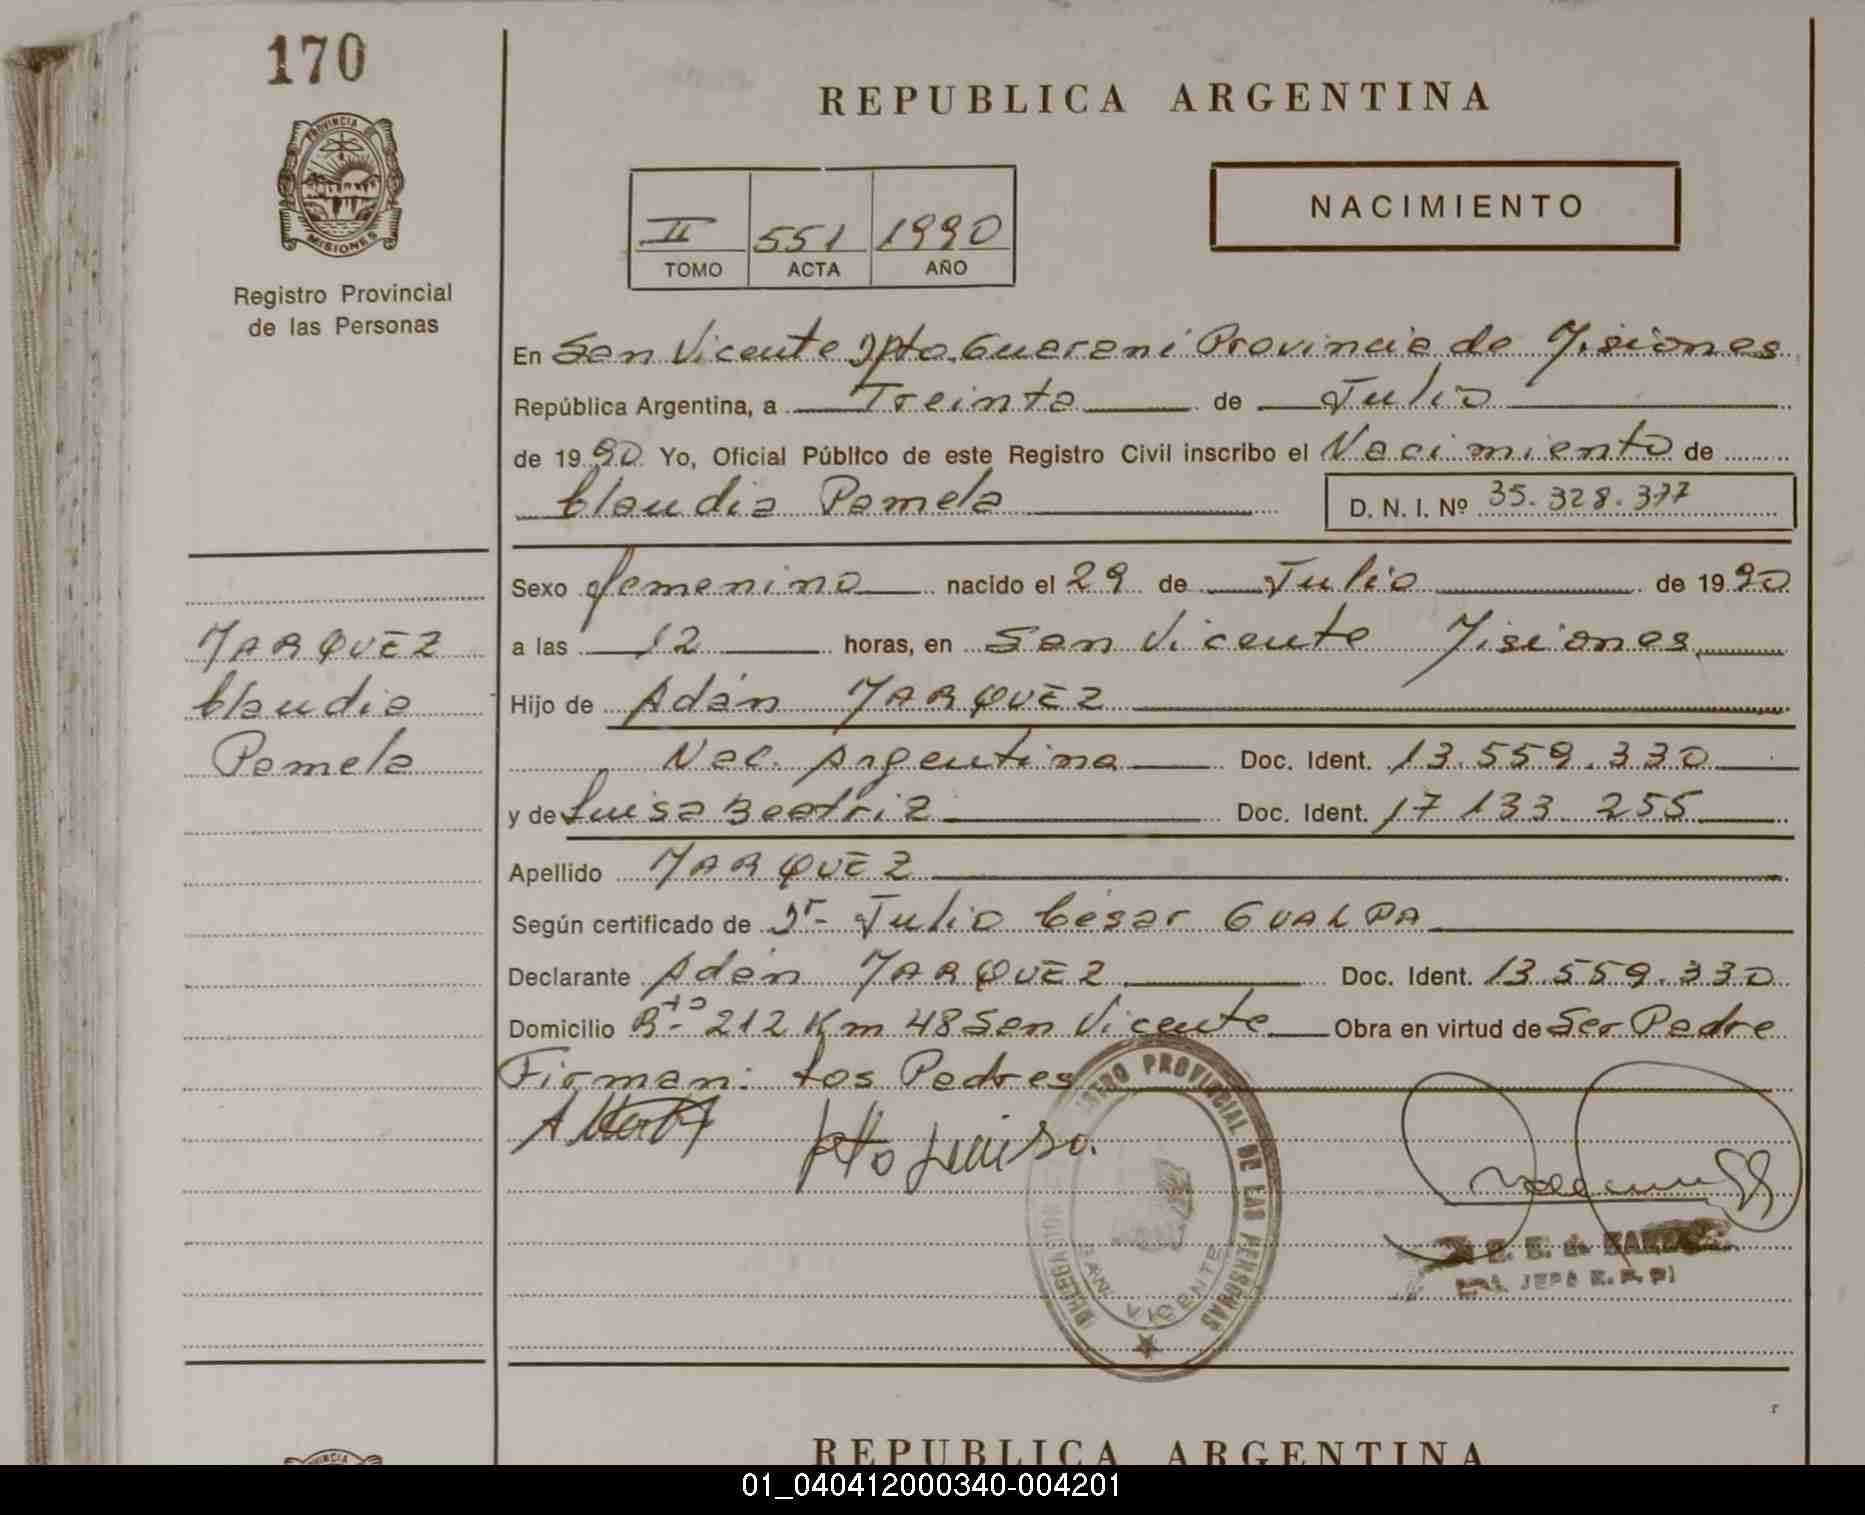 170
PROVINCIA DE
MISIONES
Registro Provincial
de las Personas
REPUBLICA ARGENTINA
II 551 1990
TOMO ACTA AÑO
NACIMIENTO
En San Vicente Dpto. Guarani Provincia de Misiones
República Argentina, a Treinta de Julio
de 1990 Yo, Oficial Público de este Registro Civil inscribo el Nacimiento de
Claudia Pamela D. N. I. Nº 35.328.377
Sexo femenino nacido el 29 de Julio de 1990
MARQUEZ
Claudia
Pamela
a las 12 horas, en San Vicente Misiones
Hijo de Adán MARQUEZ
Nac. Argentina Doc. Ident. 13.559.330
y de Luisa Beatriz Doc. Ident. 17 133 255
Apellido MARQUEZ
Según certificado de Dr- Julio César GUALPA
Declarante Adán MARQUEZ Doc. Ident. 13.559.330
Domicilio Rta- 212 Km 48 San Vicente Obra en virtud de Ser Padre
Firman: Los Padres
Luisa.
REGISTRO PROVINCIAL DE LAS PERSONAS
DELEGACION
SAN VICENTE
JEFE R. P. P.
REPUBLICA ARGENTINA
01_040412000340-004201